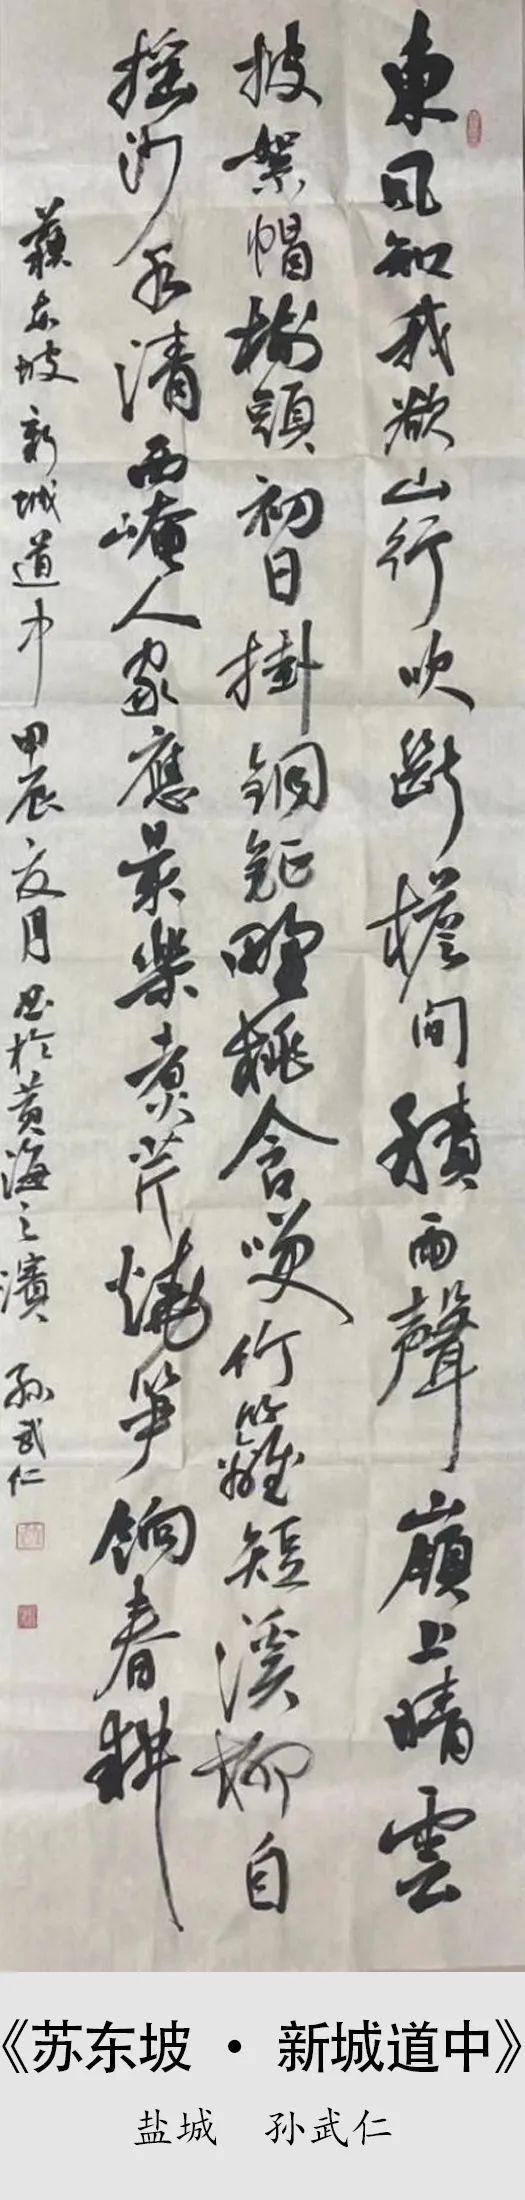 東風知我欲山行吹斷檐間積雨聲嶺上晴雲
披絮帽樹頭初日掛銅鉦野桃含咲竹籬短溪柳自
摇沙水清西崦人家應最樂煮芹燒筍餉春耕
蘇东坡新城道中 甲辰夏月书於黄海之濱 孫武仁
《苏东坡·新城道中》
盐城 孙武仁